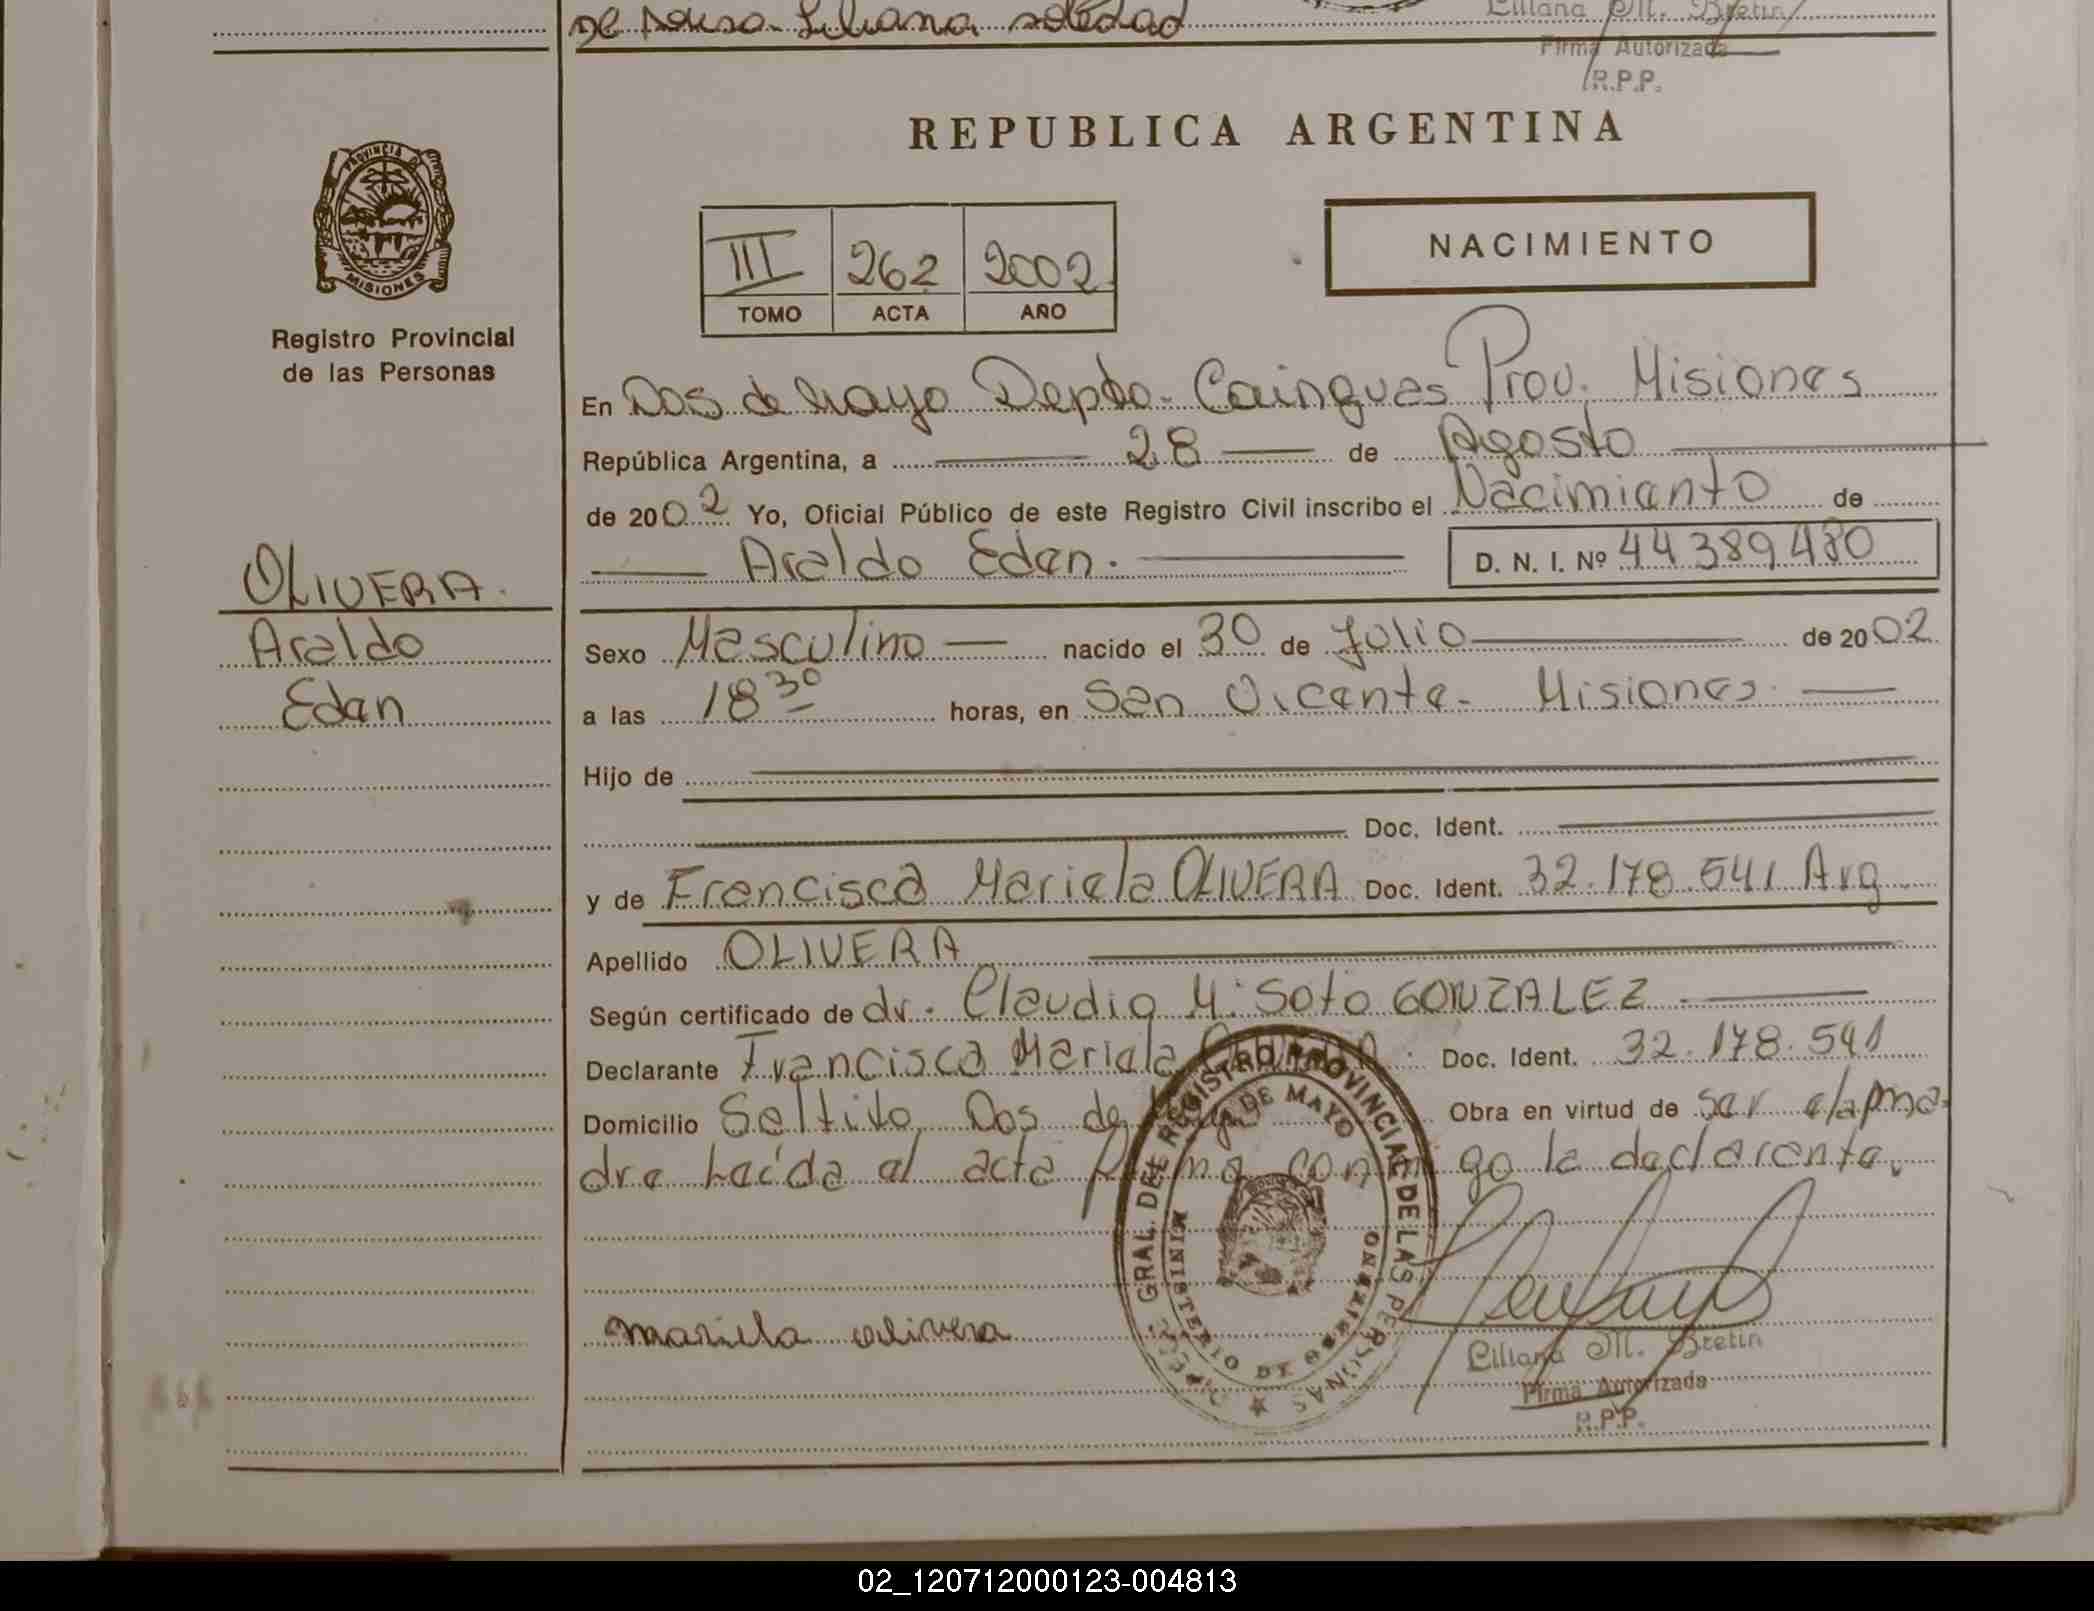 de Sousa Liliana Soledad
Liliana M. Bretin
Firma Autorizada
R.P.P.
REPUBLICA ARGENTINA
PROVINCIA DE
MISIONES
Registro Provincial
de las Personas
III 262 2002
TOMO ACTA AÑO
NACIMIENTO
En Dos de Mayo Depto. Cainguas Prov. Misiones
República Argentina, a 28 de Agosto
de 2002 Yo, Oficial Público de este Registro Civil inscribo el Nacimiento de
Araldo Edan. D. N. I. Nº 44389480
OLIVERA.
Araldo
Edan
Sexo Masculino nacido el 30 de Julio de 2002
a las 18 30 horas, en San Vicente - Misiones.
Hijo de
Doc. Ident.
y de Francisca Mariela OLIVERA Doc. Ident. 32.178.541 Arg
Apellido OLIVERA
Según certificado de dr. Claudio M. Soto GONZALEZ
Declarante Francisca Mariela Doc. Ident. 32.178.541
Domicilio Saltito Dos de Mayo Obra en virtud de ser la ma-
dre Leída el acta firma conmigo la declarante.
GRAL. DEL REGISTRO PROVINCIAL DE LAS PERSONAS
DE MAYO
MINISTERIO DE GOBIERNO
mariela olivera
Liliana M. Bretin
Firma Autorizada
R.P.P.
02_120712000123-004813